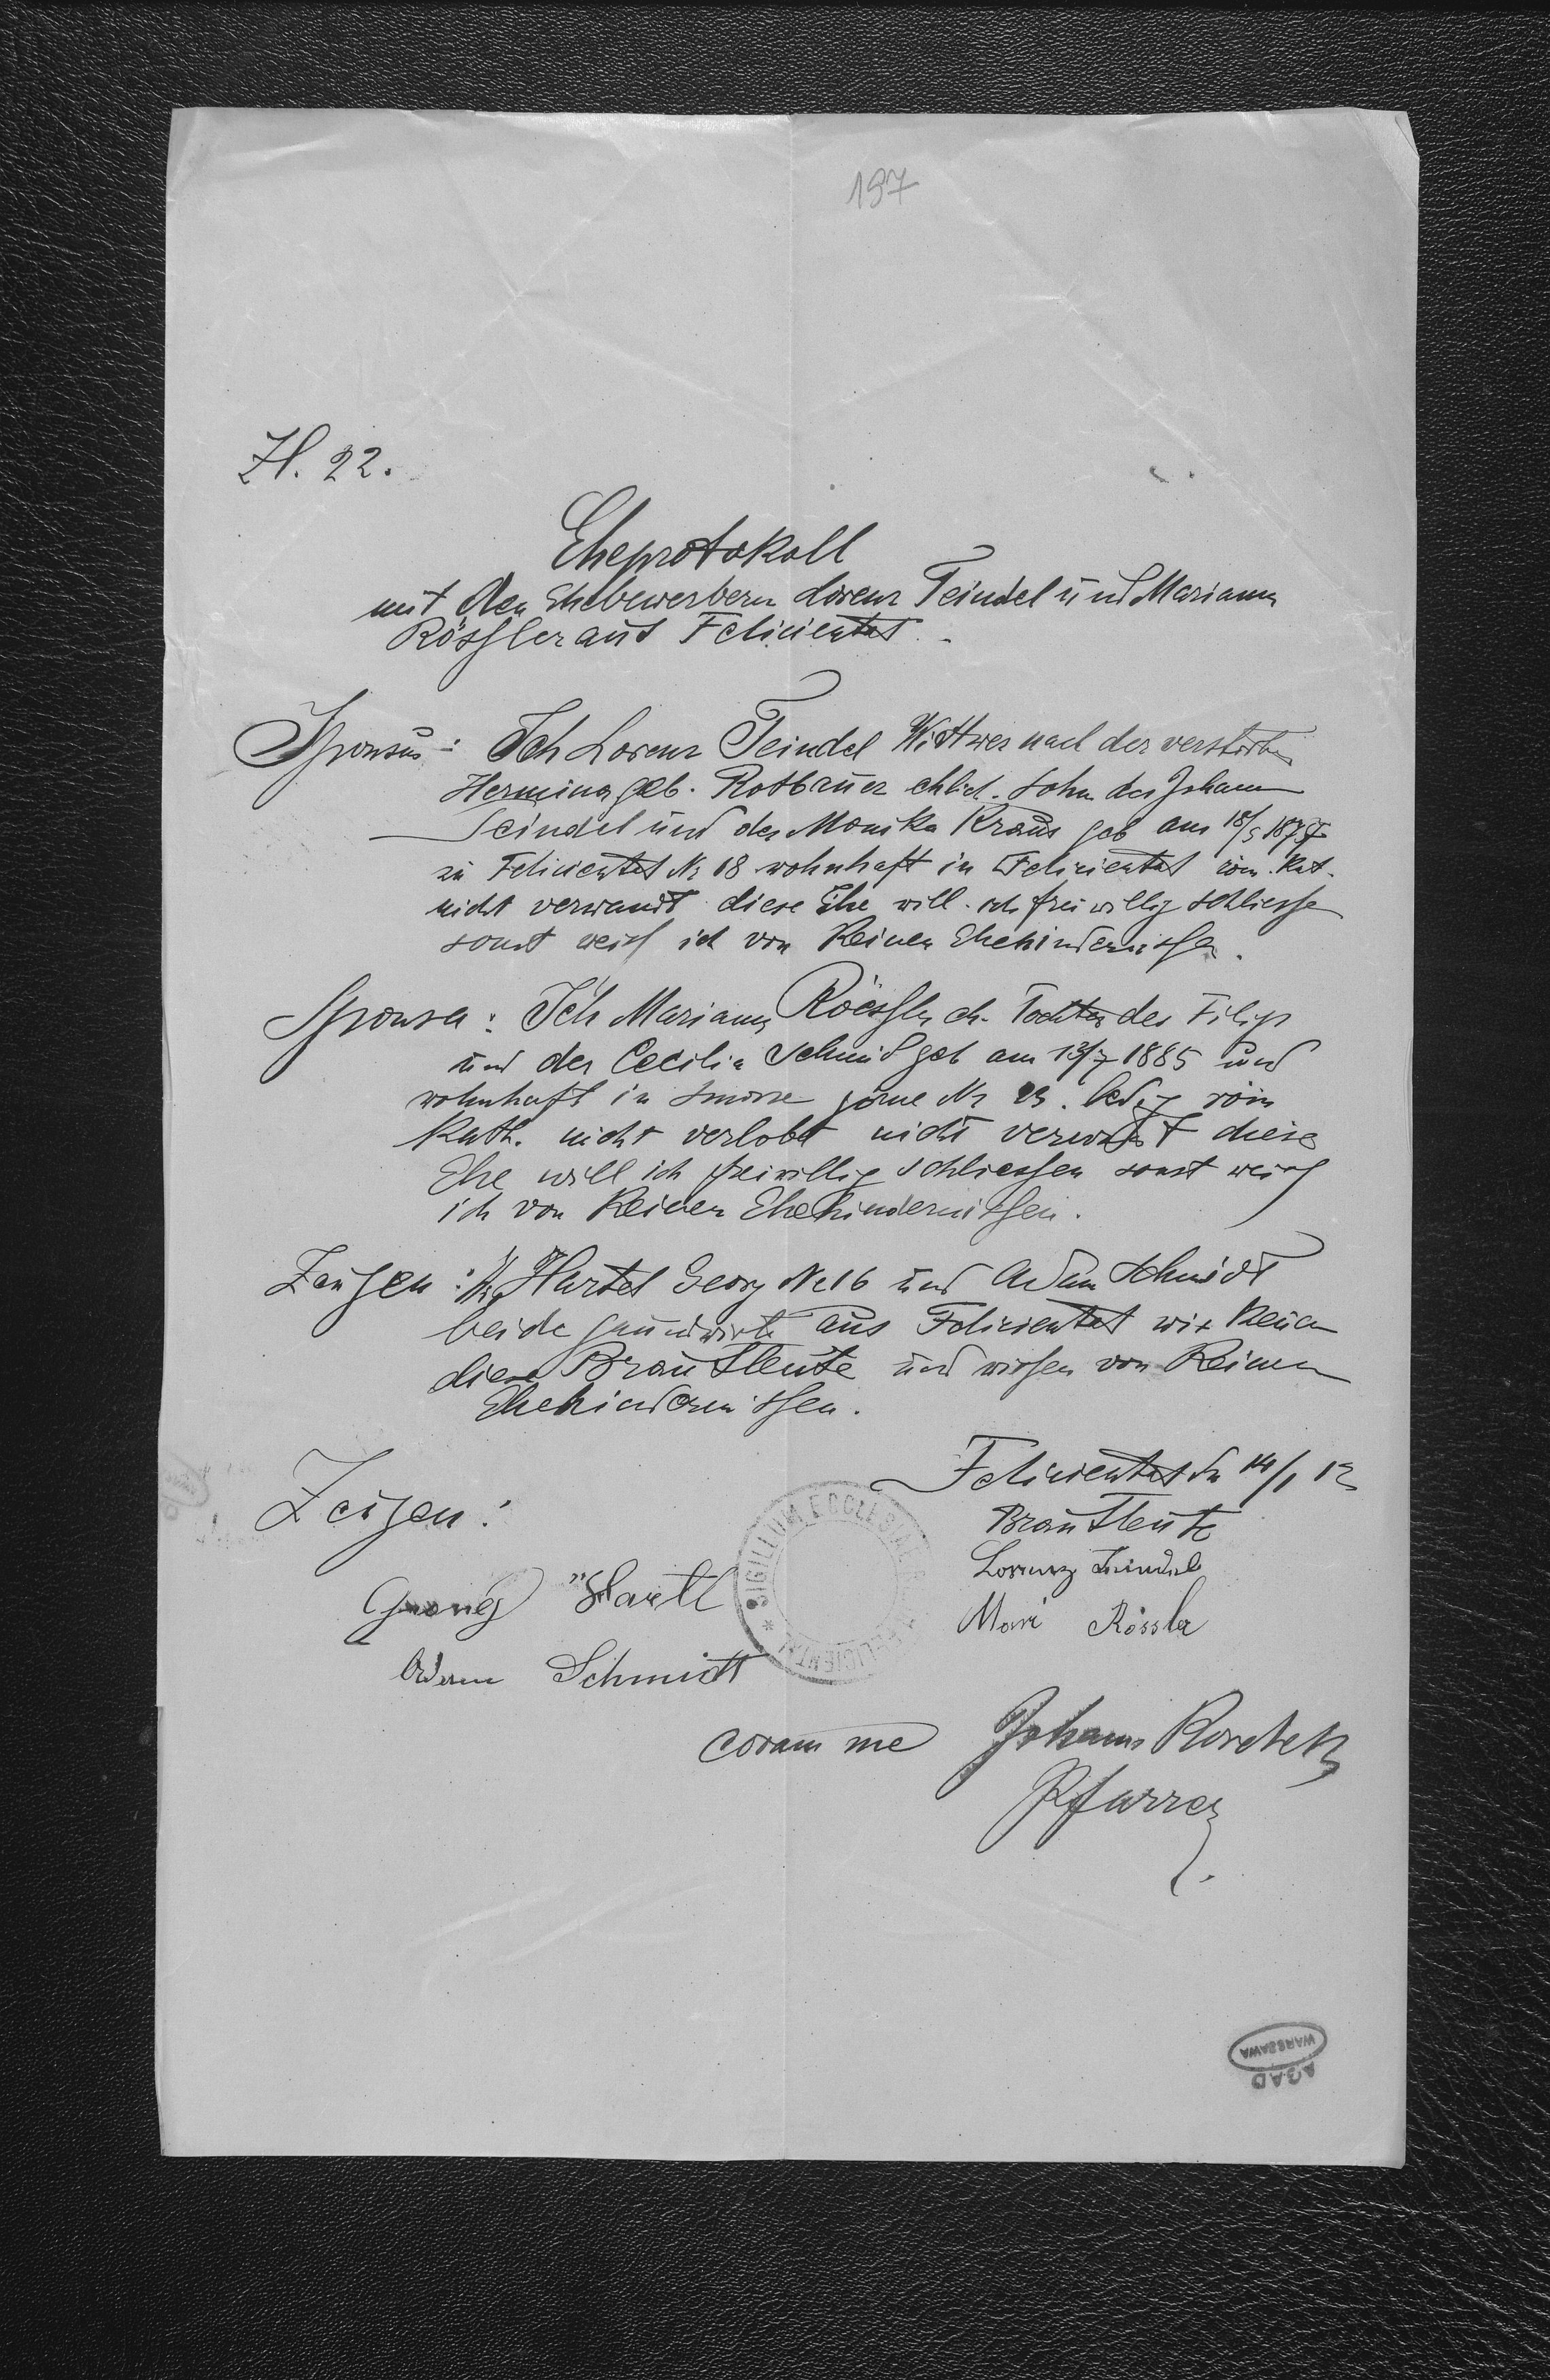 197
Zl. 22.
Eheprotokoll
mit den Ehebewerbern Lorenz Teindel und Marianna
Rössler aus Felicientat.
Sponsus: Ich Lorenz Teindel Wittwer nach der verstorben
Hermina geb. Rotbauer ehlich. Sohn des Johann
Teindel und der Monika Kraus geb am 18/5 1877
in Felicientat Nr 18 wohnhaft in Felicientat röm. Kat.
nicht verwandt diese Ehe will ich freiwillig schliessen
sonst weiss ich von Keinen Ehehindernissen.
Sponsa: Ich Marianna Röessler eh. Tochter des Filip
und der Cecilia Schmid geb am 13/7 1885 und
wohnhaft in Smorze gorne Nr 23. ledig röm
Kath. nicht verlobt nicht verwandt diese
Ehe will ich freiwillig schliessen sonst weiss
ich von Keinen Ehehindernissen.
Zeugen: Hartel Georg Nr 16 und Adam Schmidt
beide grundwirte aus Felicientat wir Kennen
diese Brautleute und wissen von Keinen
Ehehindernissen.
Felicientat den 14/1 12
Zeugen:
Brautleute
Lorenz Teindel
Georg Hartl
Mari Rössler
Adam Schmidt
SIGILLUM ECCLESIAE FELICIENTAL
coram me Johann
Pfarrer
AGAD
WARSZAWA